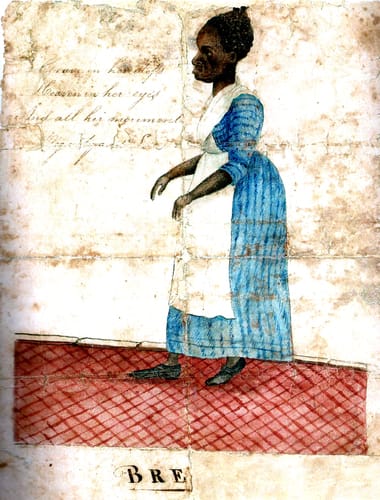 Grace in her steps
Heaven in her eyes
And all her movement
Grace
BRE